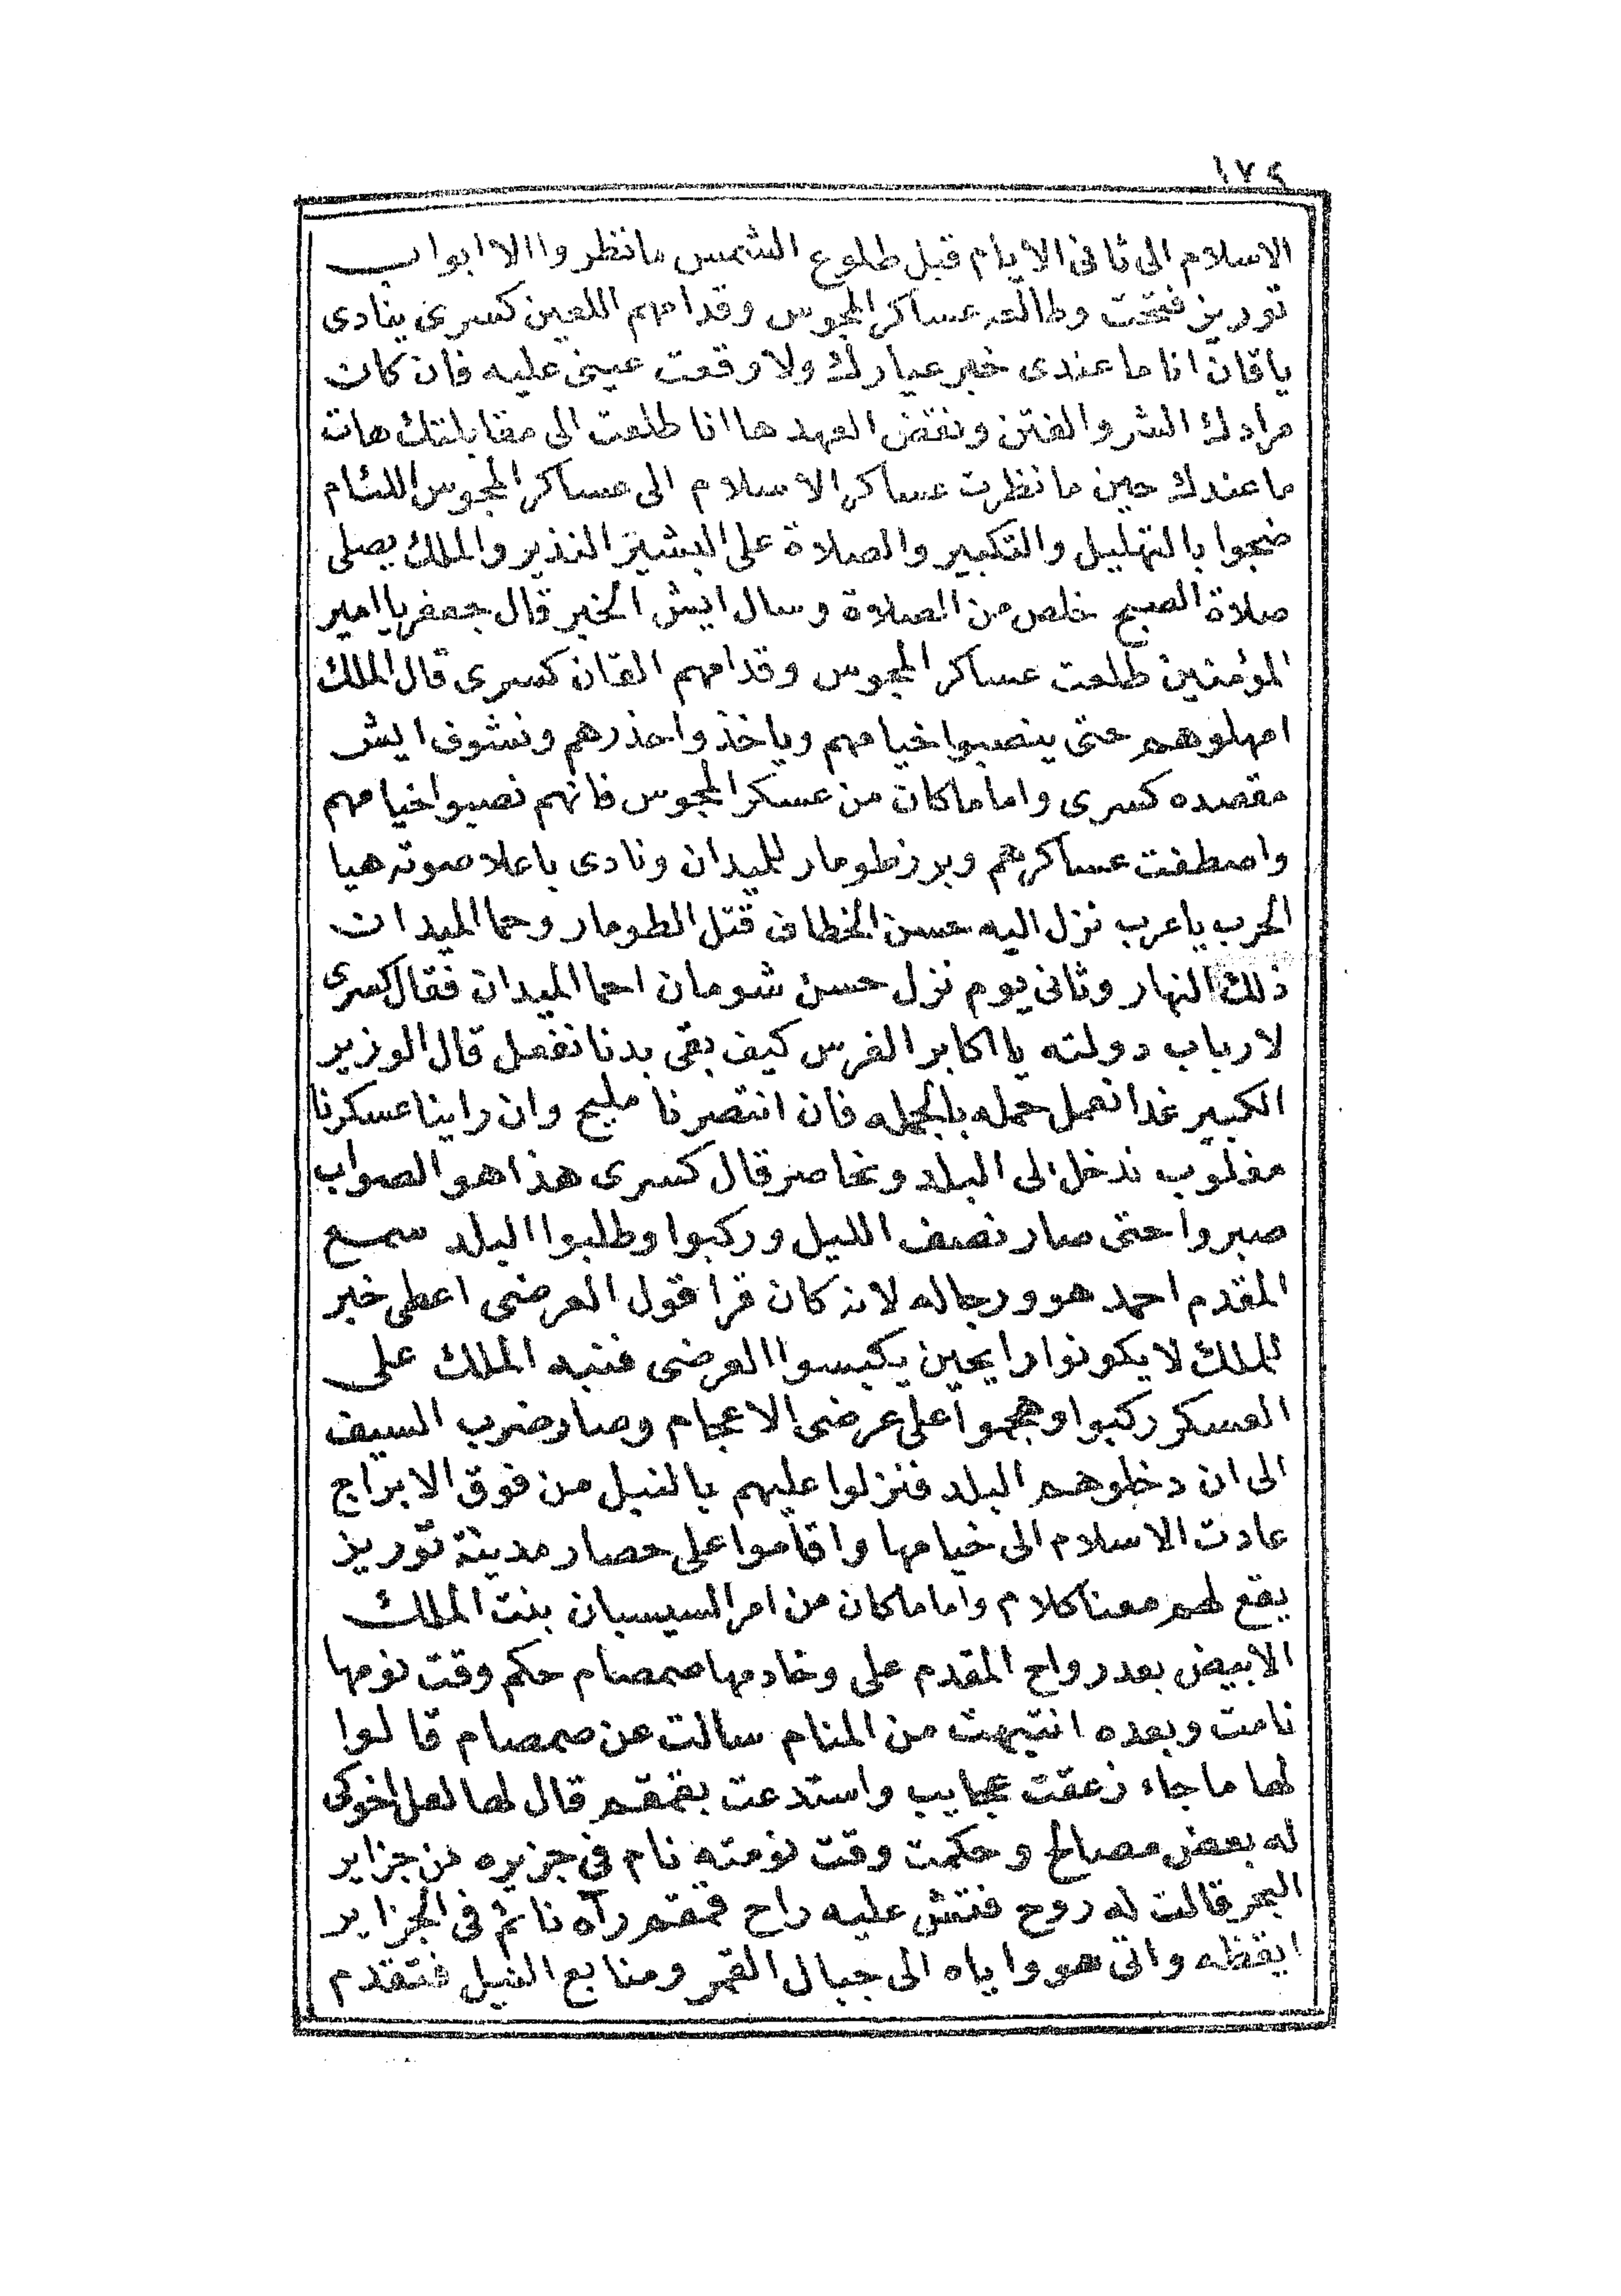 ١٧٤
الاسلام الى ثانى الايام قبل طلوع الشمس ما نظروا الا ابواب
توريز فتحت وطالعه عساكر المجوس وقدامهم اللعين كسرى ينادى
ياقان انا ما عندى خبر عيارك ولا وقعت عينى عليه فان كان
مرادك الشر والفتن ونقض العهد ها انا طلعت الى مقابلتك هات
ما عندك حين ما نظرت عساكر الاسلام الى عساكر المجوس اللئام
ضجوا بالتهليل والتكبير والصلاة على البشير النذير والملك يصلى
صلاة الصبح خلص من الصلاة وسال ايش الخبر قال جعفر يا امير
المؤمنين طلعت عساكر المجوس وقدامهم القان كسرى قال الملك
امهلوهم حتى ينصبوا خيامهم وياخذوا حذرهم ونشوف ايش
مقصده كسرى واما ماكان من عسكر المجوس فانهم نصبوا خيامهم
واصطفت عساكرهم وبرز طومار للميدان ونادى باعلا صوته هيا
الحرب ياعرب نزل اليه حسن الخطاف قتل الطومار وحما الميدان
ذلك النهار وثانى يوم نزل حسن شومان احما الميدان فقال كسرى
لارباب دولته يا اكابر الفرس كيف بقى بدنا نفعل قال الوزير
الكبير غدا نعمل حمله بالجمله فان انتصرنا مليح وان راينا عسكرنا
مغلوب ندخل الى البلد ونحاصر قال كسرى هذا هو الصواب
صبروا حتى صار نصف الليل وركبوا وطلبوا البلد سمع
المقدم احمد هو ورجاله لانه كان قراقول العرضى اعطى خبر
للملك لا يكونوا رايحين يكبسوا العرضى فنبه الملك على
العسكر ركبوا وهجموا على عرضى الاعجام وصار ضرب السيف
الى ان دخلوهم البلد فنزلوا عليهم بالنبل من فوق الابراج
عادت الاسلام الى خيامها واقاموا على حصار مدينة توريز
يقع لهم معنا كلام واما ماكان من امر السيسبان بنت الملك
الابيض بعد رواح المقدم على وخادمها صمصام حكم وقت نومها
نامت وبعده انتبهت من المنام سالت عن صمصام قالوا
لها ما جاء زعقت عجايب واستدعت بقمقم قال لها لعل اخوكى
له بعض مصالح وحكمت وقت نومته نام فى جزيره من جزاير
البحر قالت له روح فتش عليه راح قمقم رآه نائم فى الجزاير
ايقظه واتى هو واياه الى جبال القمر ومنابع النيل فتقدم